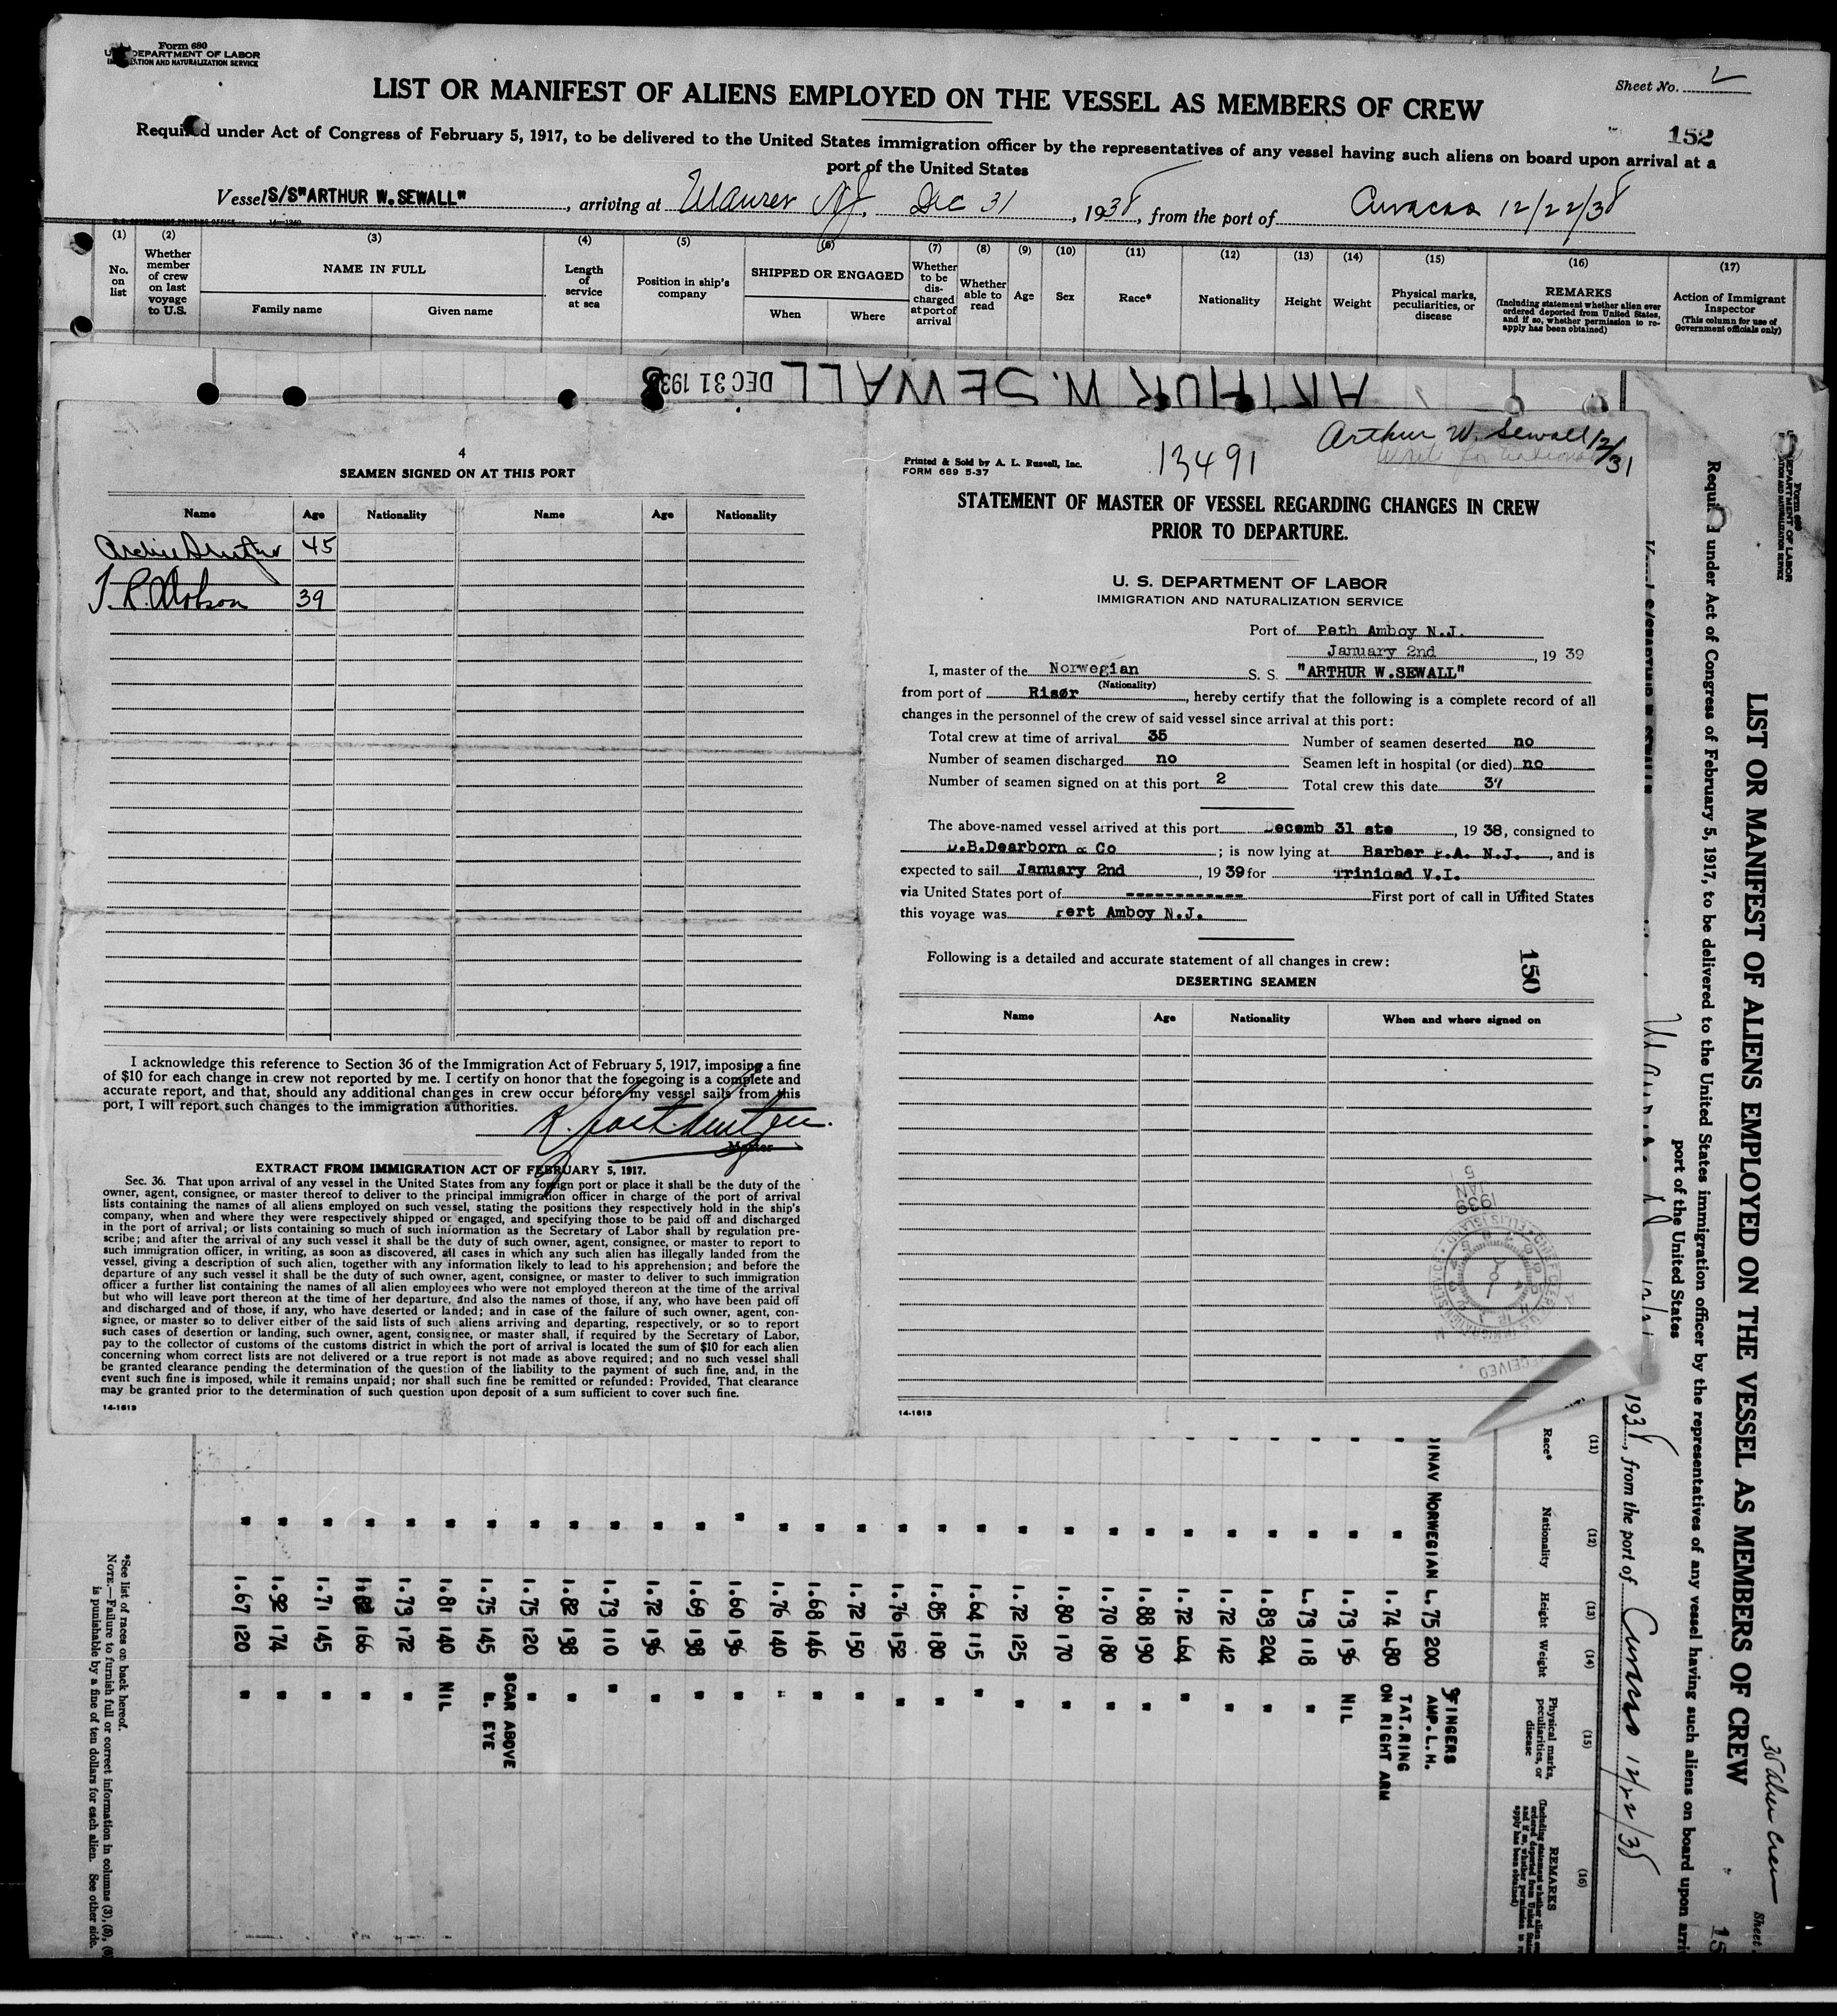 Form 680
DEPARTMENT OF LABOR
IMMIGRATION AND NATURALIZATION SERVICE
Sheet No. 2
LIST OR MANIFEST OF ALIENS EMPLOYED ON THE VESSEL AS MEMBERS OF CREW
152
Required under Act of Congress of February 5, 1917, to be delivered to the United States immigration officer by the representatives of any vessel having such aliens on board upon arrival at a
port of the United States
Vessel S/S "ARTHUR W. SEWALL", arriving at Maurer NJ, Dec 31, 1938, from the port of Curacao 12/22/38
(1) (2) (3) (4) (5) (6) (7) (8) (9) (10) (11) (12) (13) (14) (15) (16) (17)
No. on list
Whether member of crew on last voyage to U.S.
NAME IN FULL
Family name
Given name
Length of service at sea
Position in ship's company
SHIPPED OR ENGAGED
When
Where
Whether to be discharged at port of arrival
Whether able to read
Age
Sex
Race*
Nationality
Height
Weight
Physical marks, peculiarities, or disease
REMARKS
(Including statement whether alien ever ordered deported from United States, and if so, whether permission to reapply has been obtained)
Action of Immigrant Inspector
(This column for use of Government officials only)
ARTHUR W. SEWALL DEC 31 1938
4
SEAMEN SIGNED ON AT THIS PORT
Name Age Nationality Name Age Nationality
Archie 45
39
I acknowledge this reference to Section 36 of the Immigration Act of February 5, 1917, imposing a fine
of $10 for each change in crew not reported by me. I certify on honor that the foregoing is a complete and
accurate report, and that, should any additional changes in crew occur before my vessel sails from this
port, I will report such changes to the immigration authorities.
Master
EXTRACT FROM IMMIGRATION ACT OF FEBRUARY 5, 1917.
Sec. 36. That upon arrival of any vessel in the United States from any foreign port or place it shall be the duty of the
owner, agent, consignee, or master thereof to deliver to the principal immigration officer in charge of the port of arrival
lists containing the names of all aliens employed on such vessel, stating the positions they respectively hold in the ship's
company, when and where they were respectively shipped or engaged, and specifying those to be paid off and discharged
in the port of arrival; or lists containing so much of such information as the Secretary of Labor shall by regulation pre-
scribe; and after the arrival of any such vessel it shall be the duty of such owner, agent, consignee, or master to report to
such immigration officer, in writing, as soon as discovered, all cases in which any such alien has illegally landed from the
vessel, giving a description of such alien, together with any information likely to lead to his apprehension; and before the
departure of any such vessel it shall be the duty of such owner, agent, consignee, or master to deliver to such immigration
officer a further list containing the names of all alien employees who were not employed thereon at the time of the arrival
but who will leave port thereon at the time of her departure, and also the names of those, if any, who have been paid off
and discharged and of those, if any, who have deserted or landed; and in case of the failure of such owner, agent, con-
signee, or master so to deliver either of the said lists of such aliens arriving and departing, respectively, or so to report
such cases of desertion or landing, such owner, agent, consignee, or master shall, if required by the Secretary of Labor,
pay to the collector of customs of the customs district in which the port of arrival is located the sum of $10 for each alien
concerning whom correct lists are not delivered or a true report is not made as above required; and no such vessel shall
be granted clearance pending the determination of the question of the liability to the payment of such fine, and, in the
event such fine is imposed, while it remains unpaid; nor shall such fine be remitted or refunded: Provided, That clearance
may be granted prior to the determination of such question upon deposit of a sum sufficient to cover such fine.
14-1613
Arthur W. Sewall 12/31
Printed & Sold by A. L. Russell, Inc.
FORM 689 5-37
13491
STATEMENT OF MASTER OF VESSEL REGARDING CHANGES IN CREW
PRIOR TO DEPARTURE.
U. S. DEPARTMENT OF LABOR
IMMIGRATION AND NATURALIZATION SERVICE
Port of Peth Amboy N.J.
January 2nd, 19 39
I, master of the Norwegian S. S. "ARTHUR W.SEWALL"
(Nationality)
from port of Risør, hereby certify that the following is a complete record of all
changes in the personnel of the crew of said vessel since arrival at this port:
Total crew at time of arrival 35 Number of seamen deserted no
Number of seamen discharged no Seamen left in hospital (or died) no
Number of seamen signed on at this port 2 Total crew this date 37
The above-named vessel arrived at this port Decemb 31 ste, 19 38, consigned to
D.B.Dearborn & Co; is now lying at Barber P.A. N.J., and is
expected to sail January 2nd, 19 39 for Trinidad V.I.
via United States port of ------------ First port of call in United States
this voyage was Pert Amboy N.J.
Following is a detailed and accurate statement of all changes in crew:
150
DESERTING SEAMEN
Name Age Nationality When and where signed on
1939
JAN 5
RECEIVED
14-1613
Form 680
DEPARTMENT OF LABOR
LIST OR MANIFEST OF ALIENS EMPLOYED ON THE VESSEL AS MEMBERS OF CREW
Required under Act of Congress of February 5, 1917, to be delivered to the United States immigration officer by the representatives of any vessel having such aliens on board upon arri
port of the United States
1938, from the port of Curacao 12/22/38
Alien Crew
Sheet
15
(11) (12) (13) (14) (15) (16)
Race* Nationality Height Weight Physical marks, peculiarities, or disease REMARKS
INAV NORWEGIAN 1.75 200 FINGERS AMP.L.H.
" 1.74 180 TAT.RING ON RIGHT ARM
" 1.73 136 NIL
" 1.73 118 "
" 1.83 204 "
" 1.72 142 "
" 1.72 164 "
" 1.88 190 "
" 1.70 180 "
" 1.80 170 "
" 1.72 125 "
" 1.64 115 "
" 1.85 180 "
" 1.76 152 "
" 1.72 150 "
" 1.68 146 "
" 1.76 140 "
" 1.60 136 "
" 1.69 138 "
" 1.72 136 "
" 1.73 110 "
" 1.82 138 "
" 1.75 120 "
" 1.75 145 SCAR ABOVE R. EYE
" 1.81 140 NIL
" 1.73 172 "
" 166 "
" 1.71 145 "
" 1.92 174 "
" 1.67 120 "
*See list of races on back hereof.
NOTE.—Failure to furnish full or correct information in columns (3), (5), (6)
is punishable by a fine of ten dollars for each alien. See other side.